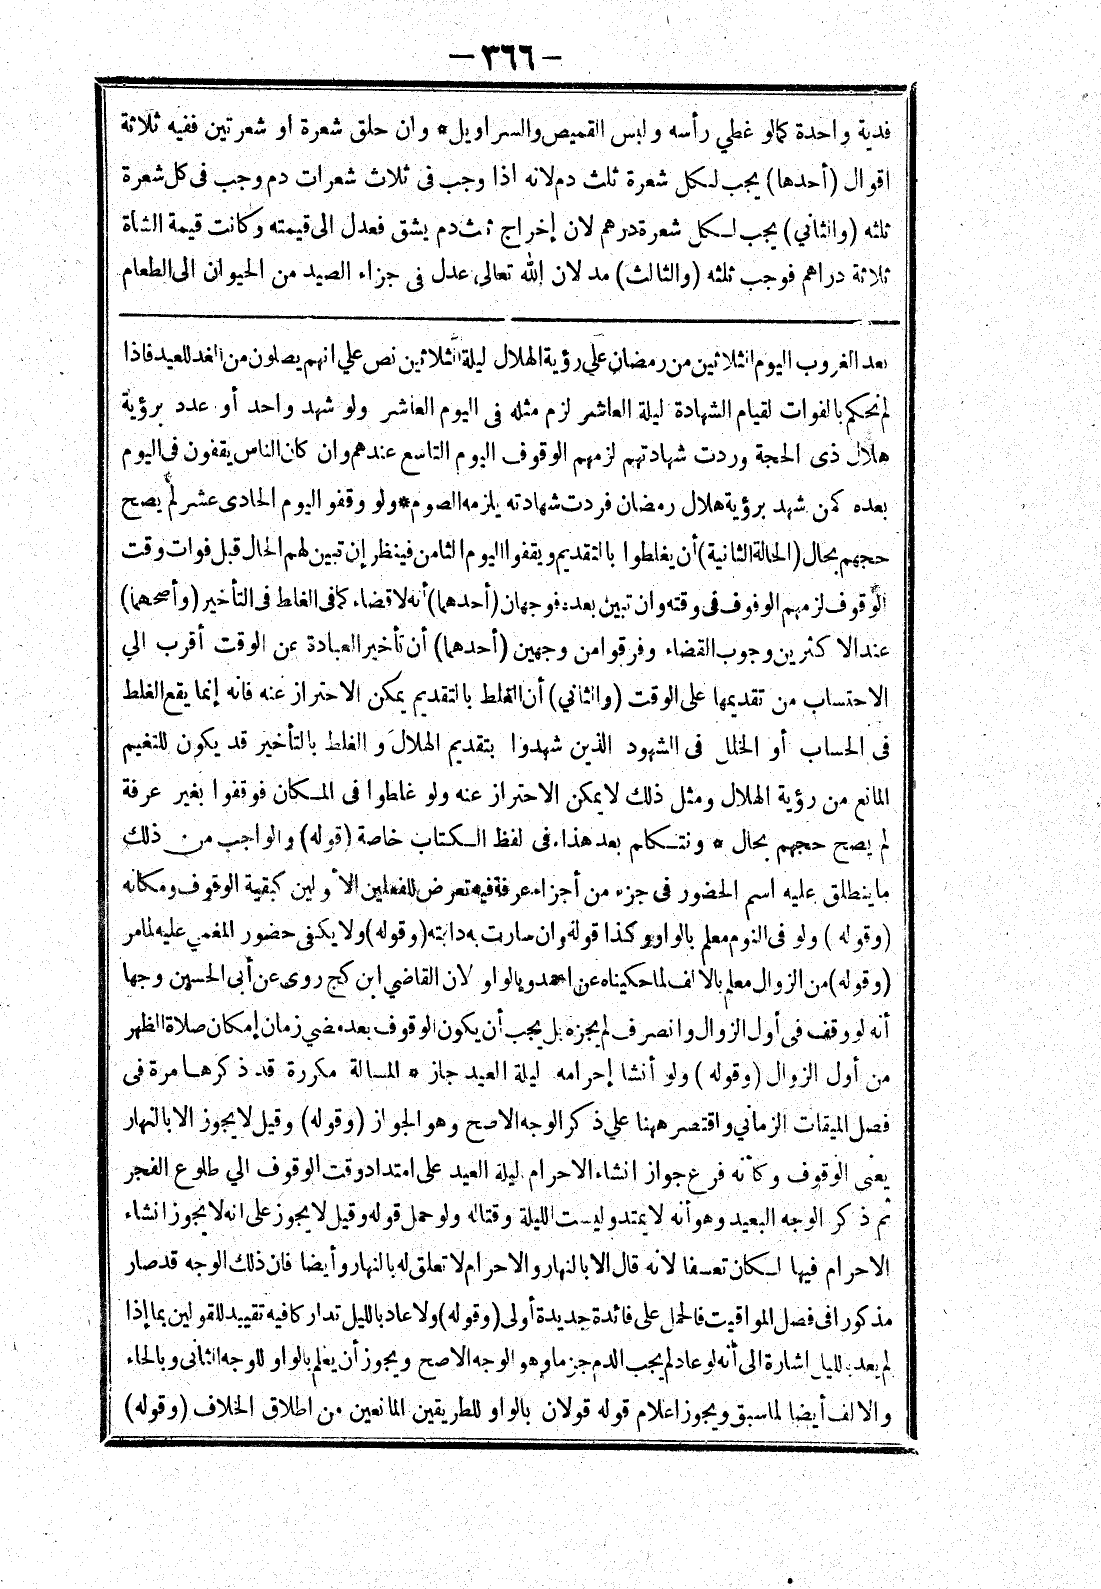 — ٣٦٦ —
فدية واحدة كما لو غطي رأسه ولبس القميص والسراويل * وان حلق شعرة او شعرتين ففيه ثلاثة
اقوال (أحدها) يجب لكل شعرة ثلث دم لانه اذا وجب فى ثلاث شعرات دم وجب فى كل شعرة
ثلثه (والثاني) يجب لكل شعرة درهم لان إخراج ثلث دم يشق فعدل الى قيمته وكانت قيمة الشاة
ثلاثة دراهم فوجب ثلثه (والثالث) مد لان الله تعالى عدل فى جزاء الصيد من الحيوان الى الطعام
بعد الغروب اليوم الثلاثين من رمضان علي رؤية الهلال ليلة الثلاثين نص علي انهم يصلون من الغد للعيد فاذا
لم نحكم بالفوات لقيام الشهادة ليلة العاشر لزم مثله فى اليوم العاشر ولو شهد واحد أو عدد برؤية
هلال ذى الحجة وردت شهادتهم لزمهم الوقوف اليوم التاسع عندهم وان كان الناس يقفون فى اليوم
بعده كمن شهد برؤية هلال رمضان فردت شهادته يلزمه الصوم * ولو وقفو اليوم الحادى عشر لم يصح
حجهم بحال (الحالة الثانية) أن يغلطوا بالتقديم ويقفوا اليوم الثامن فينظر إن تبين لهم الحال قبل فوات وقت
الوقوف لزمهم الوقوف فى وقته وان تبين بعده فوجهان (أحدهما) أنه لا قضاء كما فى الغلط فى التأخير (وأصحهما)
عند الاكثرين وجوب القضاء وفرقوا من وجهين (أحدهما) أن تأخير العبادة عن الوقت أقرب الي
الاحتساب من تقديمها على الوقت (والثاني) أن الغلط بالتقديم يمكن الاحتراز عنه فانه إنما يقع الغلط
فى الحساب أو الخلل فى الشهود الذين شهدوا بتقديم الهلال و الغلط بالتأخير قد يكون للتغيم
المانع من رؤية الهلال ومثل ذلك لا يمكن الاحتراز عنه ولو غلطوا فى المكان فوقفوا بغير عرفة
لم يصح حجهم بحال * ونتكلم بعد هذا فى لفظ الكتاب خاصة (قوله) والواجب من ذلك
ما ينطلق عليه اسم الحضور فى جزء من أجزاء عرفة فيه تعرض للفعلين الأولين كيفية الوقوف ومكانه
(وقوله) ولو فى النوم معلم بالواو وكذا قوله وان سارت به دابته (وقوله) ولا يكفى حضور المغمي عليه لمامر
(وقوله) من الزوال معلم بالالف لما حكيناه عن احمد وبالواو لان القاضي ابن كج روى عن أبى الحسين وجها
أنه لو وقف فى أول الزوال وانصرف لم يجزه بل يجب أن يكون الوقوف بعد مضي زمان إمكان صلاة الظهر
من أول الزوال (وقوله) ولو أنشا إحرامه ليلة العيد جاز * المسالة مكررة قد ذكرها مرة فى
فصل الميقات الزماني واقتصر ههنا علي ذكر الوجه الاصح وهو الجواز (وقوله) وقيل لا يجوز الا بالنهار
يعنى الوقوف وكأنه فرع جواز انشاء الاحرام ليلة العيد على امتداد وقت الوقوف الي طلوع الفجر
ثم ذكر الوجه البعيد وهو أنه لا يمتد وليست الليلة وقتاله ولو حمل قوله وقيل لا يجوز على انه لا يجوز انشاء
الاحرام فيها لكان تعسفا لانه قال الا بالنهار والاحرام لا تعلق له بالنهار وأيضا فان ذلك الوجه قد صار
مذكورا فى فصل المواقيت فالحمل على فائدة جديدة أولى (وقوله) ولا عاد بالليل تداركا فيه تقييد للقولين بما إذا
لم يعد بالليل اشارة الى أنه لو عاد لم يجب الدم جزما وهو الوجه الاصح ويجوز أن يعلم بالواو للوجه الثانى وبالحاء
والالف أيضا لما سبق ويجوز اعلام قوله قولان بالواو للطريقين المانعين من اطلاق الخلاف (وقوله)